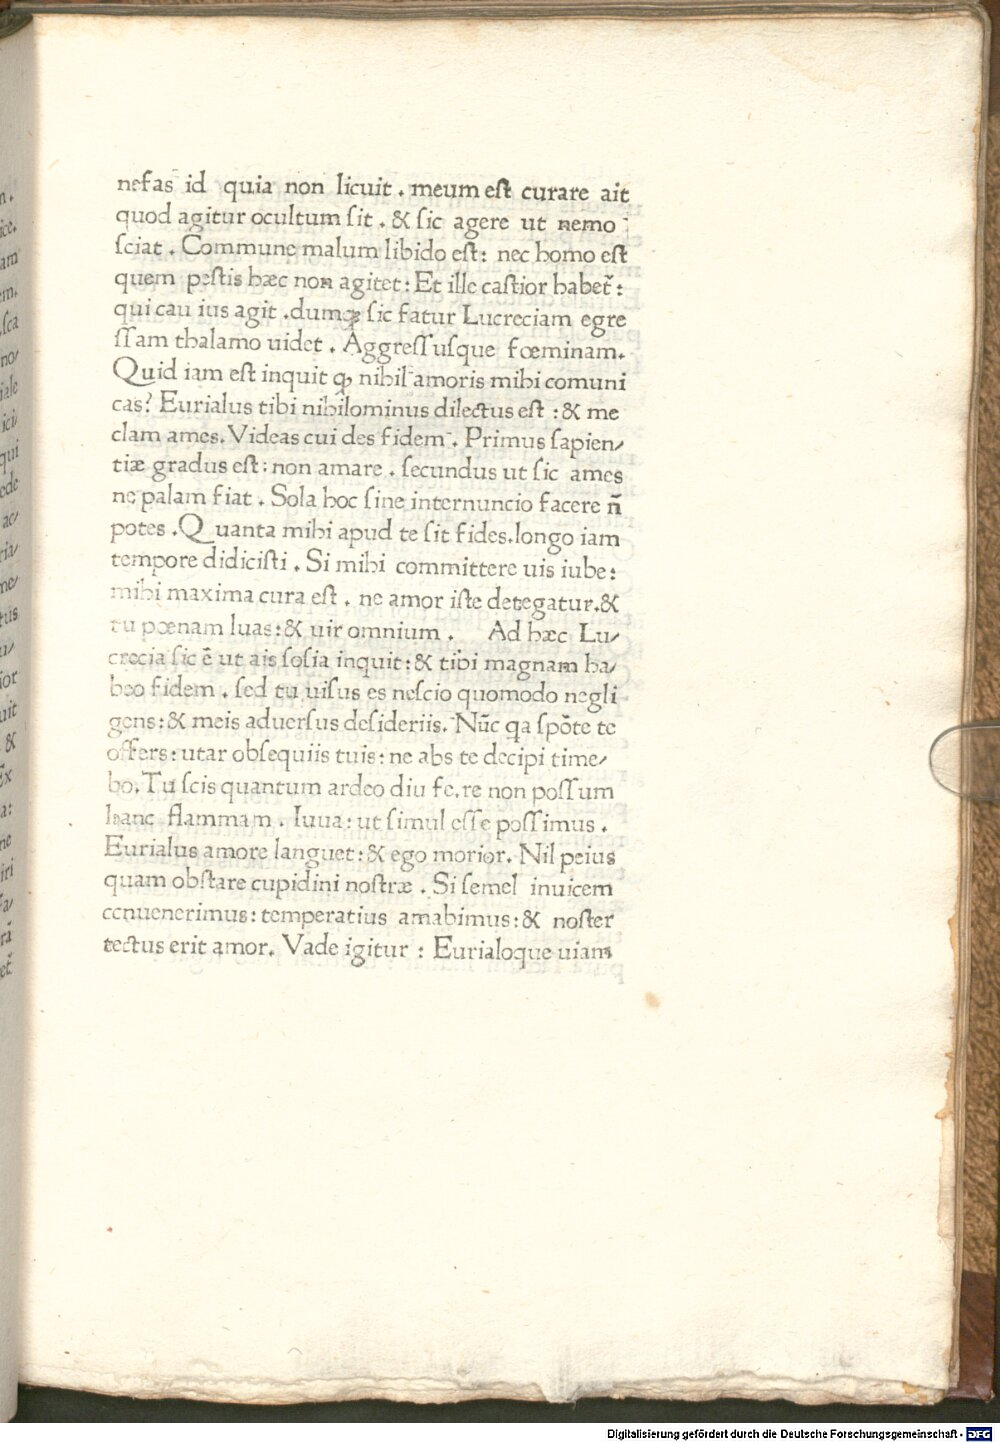 nefas id quia non licuit . meum eſt curare ait
quod agitur ocultum ſit . & ſic agere ut nemo
ſciat . Commune malum libido eſt: nec homo eſt
quem peſtis hæc non agitet: Et ille caſtior habet̃:
qui cau ius agit .dumqꝫ ſic fatur Lucreciam egre
ſſam thalamo uidet . Aggreſſuſque fœminam.
Quid iam eſt inquit ꝙ nihil amoris mihi comuni
cas? Eurialus tibi nihilominus dilectus eſt :& me
clam ames. Videas cui des fidem . Primus ſapien/
tiæ gradus eſt: non amare . ſecundus ut ſic ames
ne palam fiat . Sola hoc ſine internuncio facere ñ
potes .Quanta mihi apud te ſit fides.longo iam
tempore didiciſti . Si mihi committere uis iube:
mihi maxima cura eſt . ne amor iſte detegatur.&
tu pœnam luas:& uir omnium . Ad hæc Lu/
crecia ſic ē ut ais ſoſia inquit:& tibi magnam ha/
beo fidem . ſed tu uiſus es neſcio quomodo negli
gens:& meis aduerſus deſideriis. Nūc qa ſpõte te
offers: utar obſequiis tuis: ne abs te decipi time/
bo. Tu ſcis quantum ardeo diu fe.re non poſſum
hanc flammam . Iuua: ut ſimul eſſe poſſimus .
Eurialus amore languet:& ego morior. Nil peius
quam obſtare cupidini noſtræ . Si ſemel inuicem
conuenerimus: temperatius amabimus:& noſter
tectus erit amor. Vade igitur : Eurialoque uiam
Digitalisierung gefördert durch die Deutsche Forschungsgemeinschaft - DFG